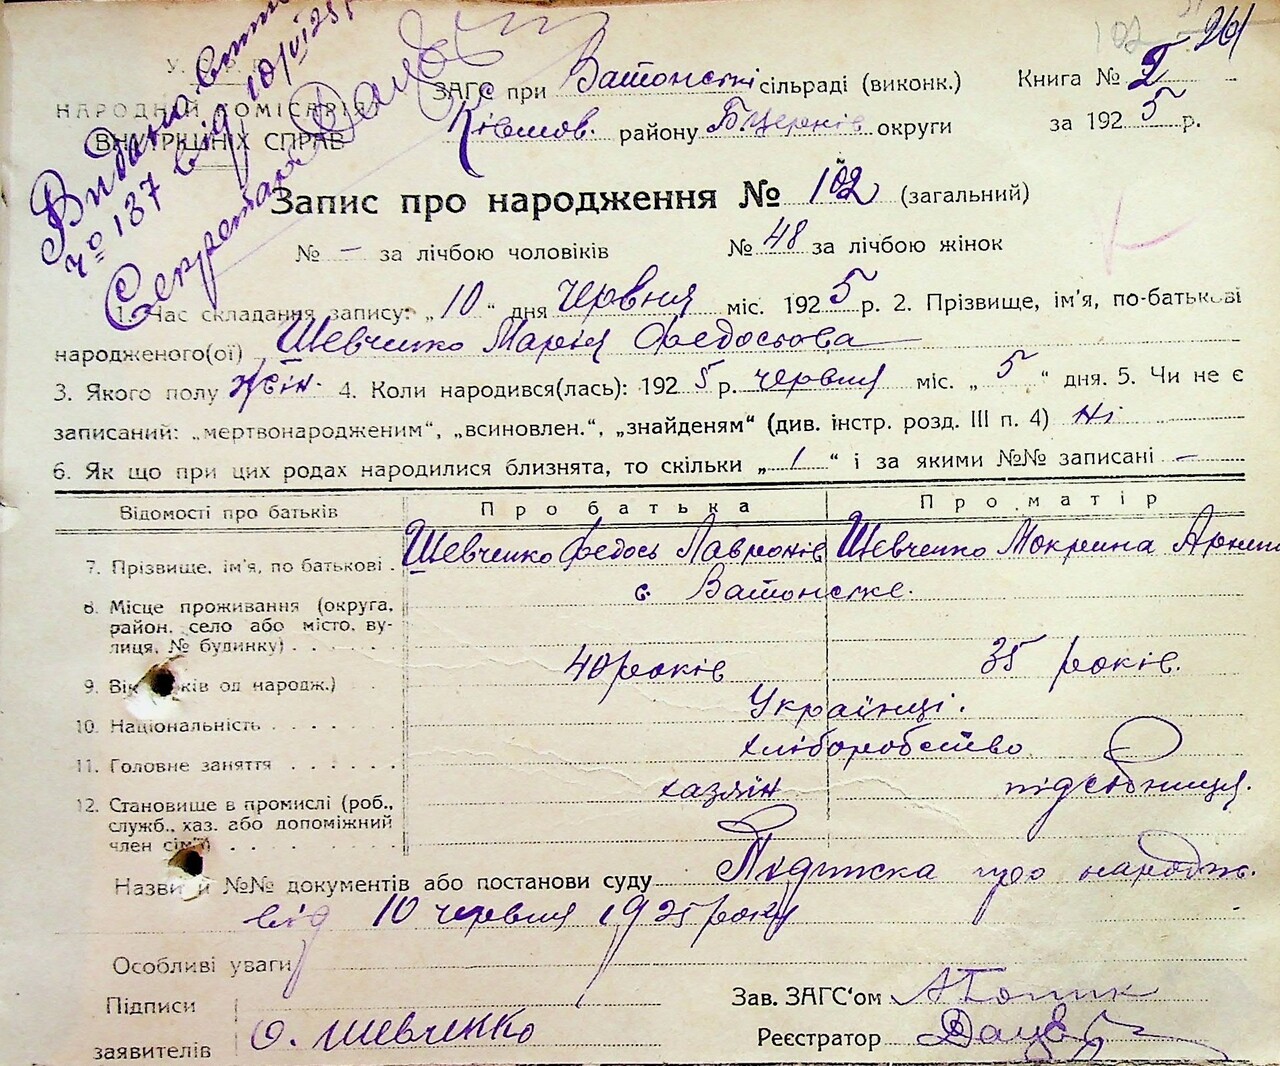 102 261
Видана
№ 137 від 10/VI 25р
Секретар
НАРОДНІЙ КОМІСАРІЯТ
ВНУТРІШНІХ СПРАВ
ЗАГС при сільраді (виконк.) Книга №
району Б.Церків округи за 1925 р.
Запис про народження № 102 (загальний)
№ — за лічбою чоловіків № 48 за лічбою жінок
1. Час складання запису: „10“ дня червня міс. 1925 р. 2. Прізвище, ім'я, по-батькові
народженого(ої) Шевченко Марія Федосьова
3. Якого полу жін. 4. Коли народився(лась): 1925 р. червня міс. „5“ дня. 5. Чи не є
записаний: „мертвонародженим“, „всиновлен.“, „знайденям“ (див. інстр. розд. III п. 4) Ні
6. Як що при цих родах народилися близнята, то скільки „1“ і за якими №№ записані —
Відомості про батьків Про батька Про матір
7. Прізвище, ім'я, по батькові Шевченко Федось Лавронів Шевченко Мокрина
8. Місце проживання (округа, с.
район, село або місто, ву-
лиця, № будинку)
9. Вік років од народж.) 40 років 35 років.
10. Національність Українці.
11. Головне заняття хліборобство
12. Становище в промислі (роб., хазяїн підсобниця.
служб., хаз. або допоміжний
член сім'ї)
Назви й №№ документів або постанови суду Підписка про народж.
від 10 червня 1925 року
Особливі уваги
Підписи Зав. ЗАГС'ом
заявителів О. Шевченко Реєстратор